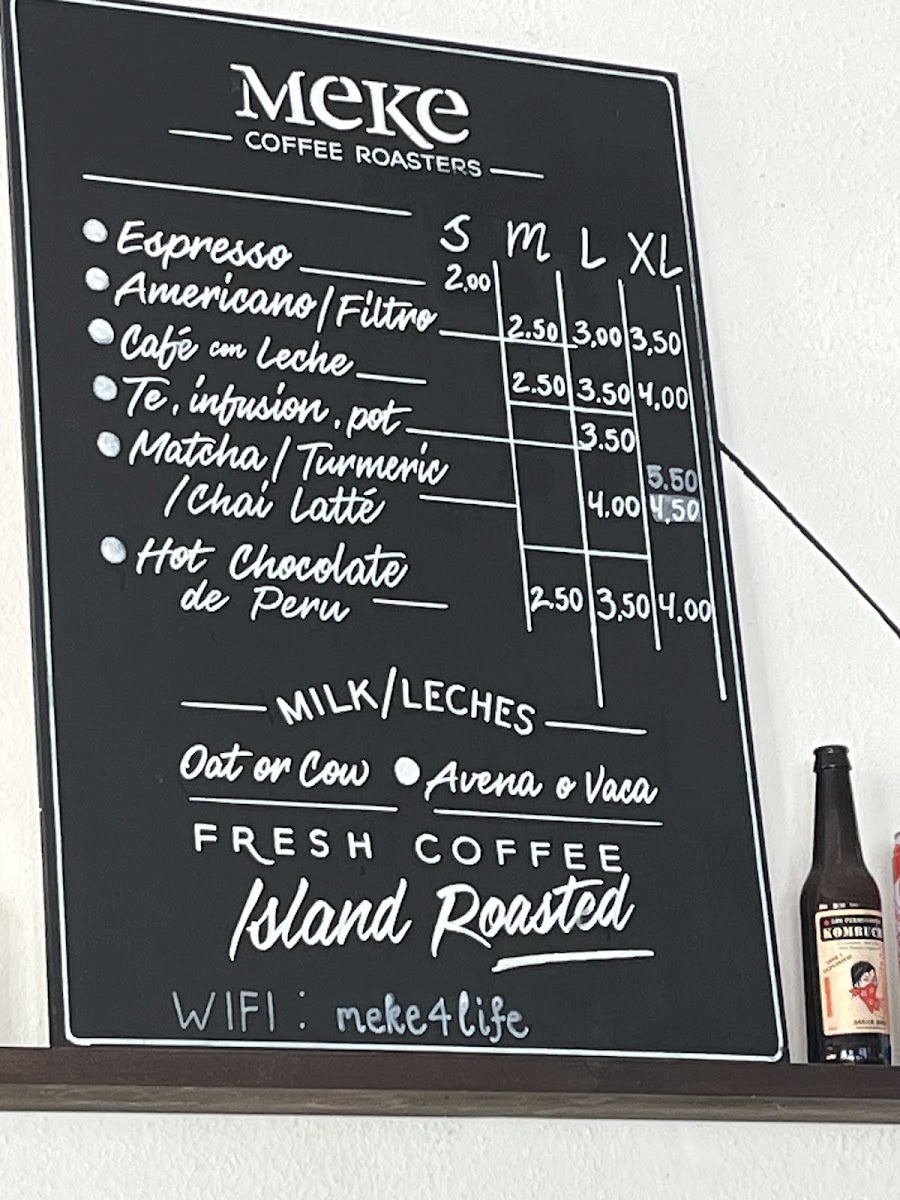 MeKe
COFFEE ROASTERS
S M L XL
Espresso 2,00
Americano/Filtro 2.50 3,00 3,50
Café con Leche 2.50 3.50 4,00
Te, infusion, pot 3.50
Matcha/Turmeric 5.50
/Chai Latté 4,00 4,50
Hot Chocolate
de Peru 2.50 3,50 4.00
MILK/LECHES
Oat or Cow Avena o Vaca
FRESH COFFEE
Island Roasted
WIFI: meke4life
KOMBUC